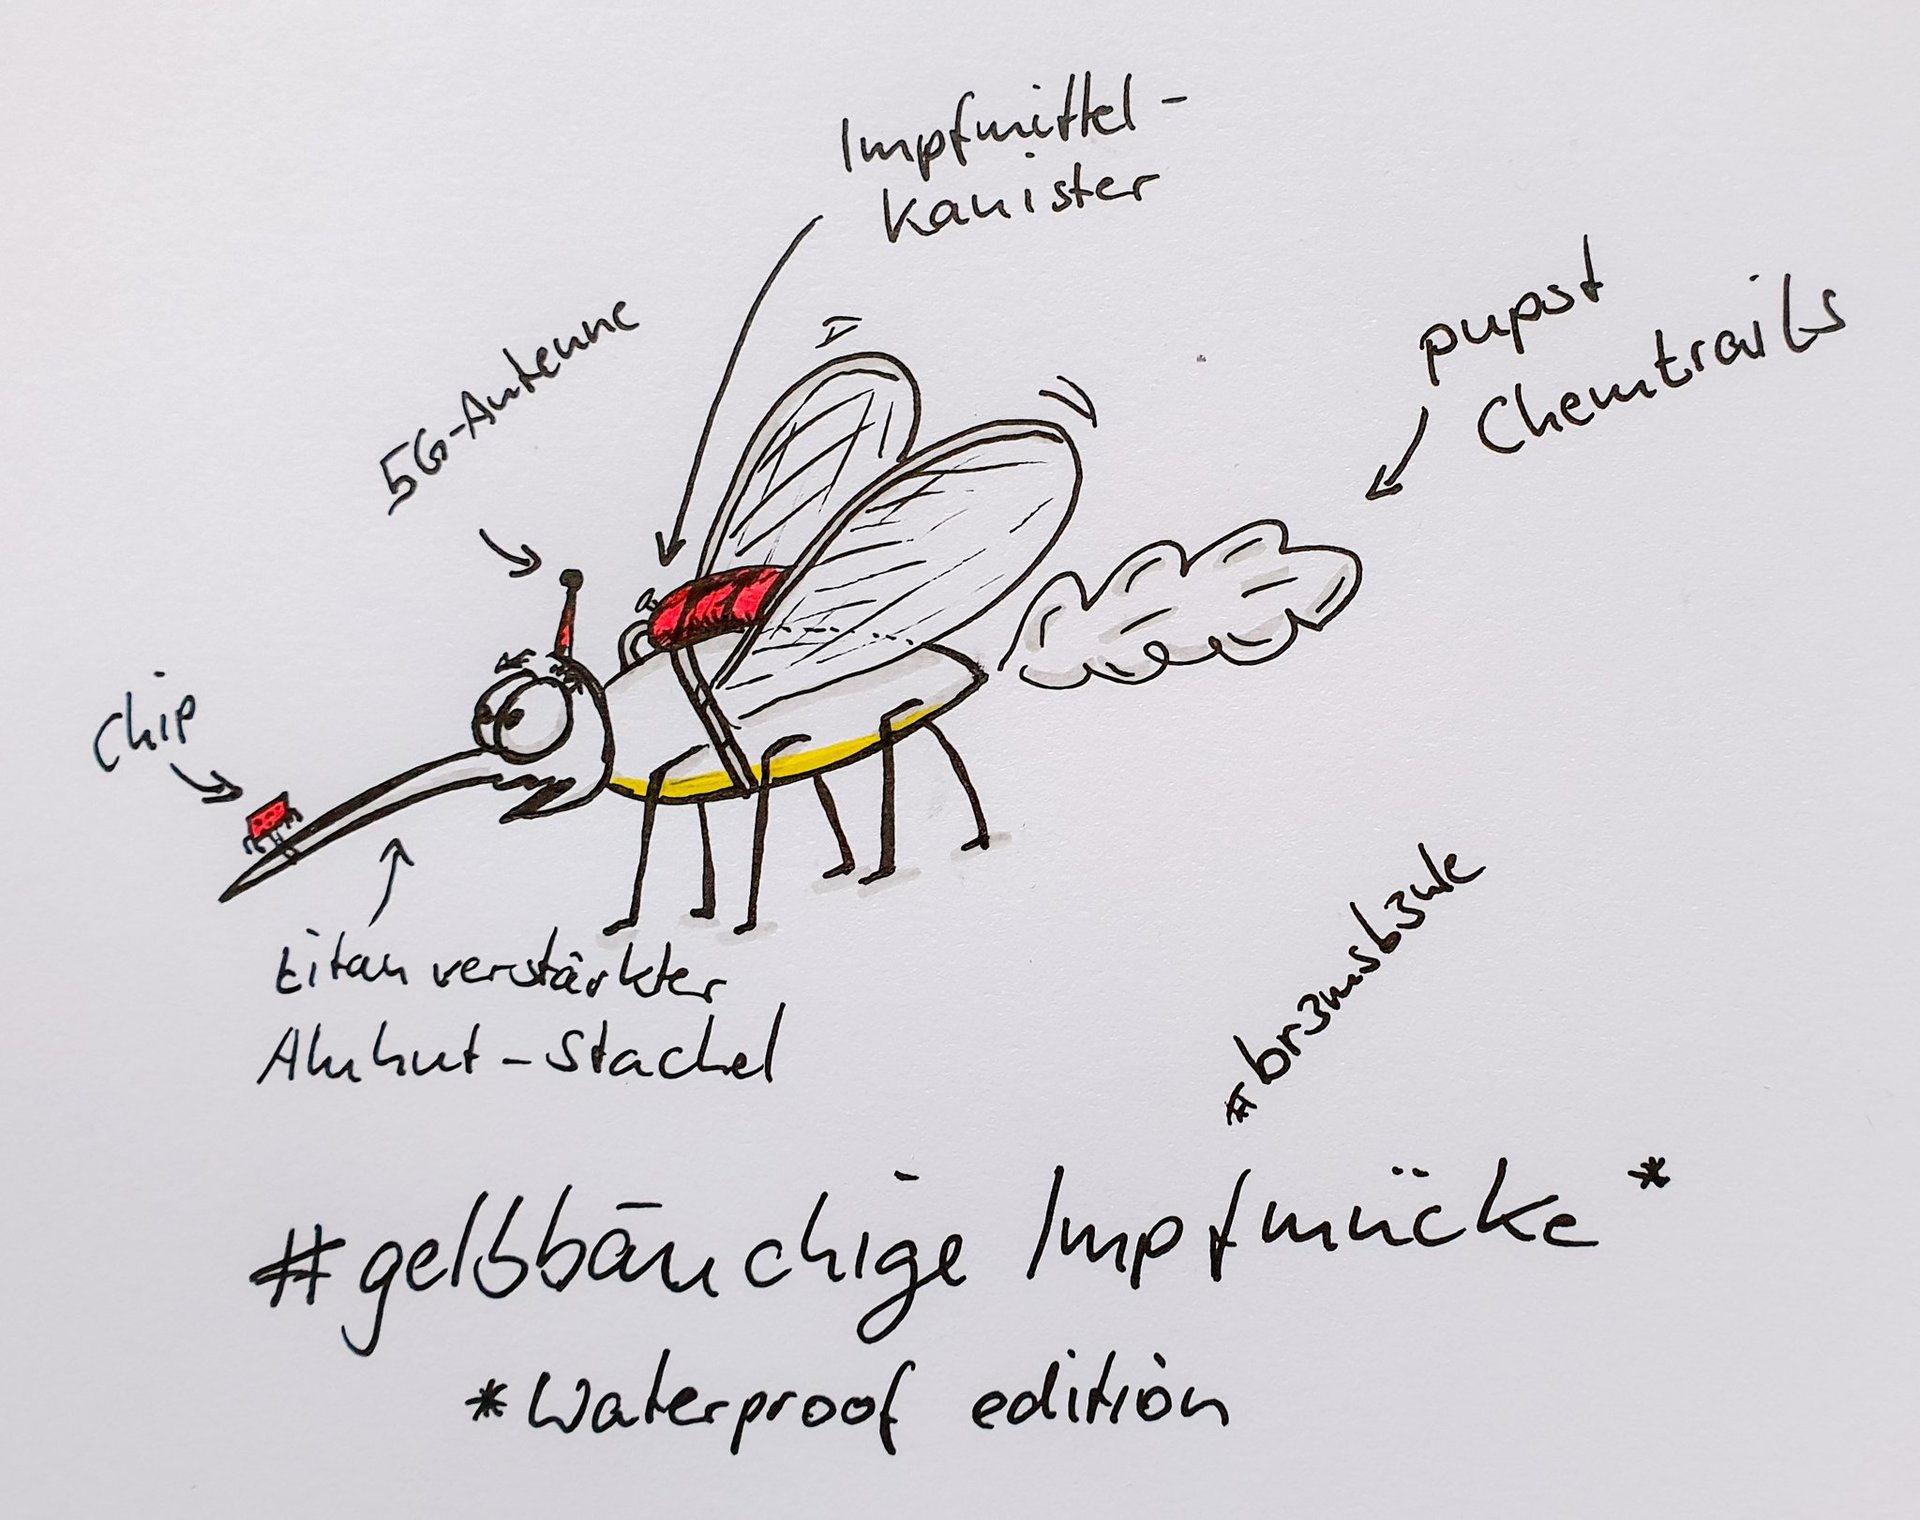 Impfmittel-
kanister
5G-Antenne
pupst
Chemtrails
Chip
titan verstärkter
Aluhut-Stachel
#br3msb3ule
#gelbbäuchige Impfmücke*
*Waterproof edition